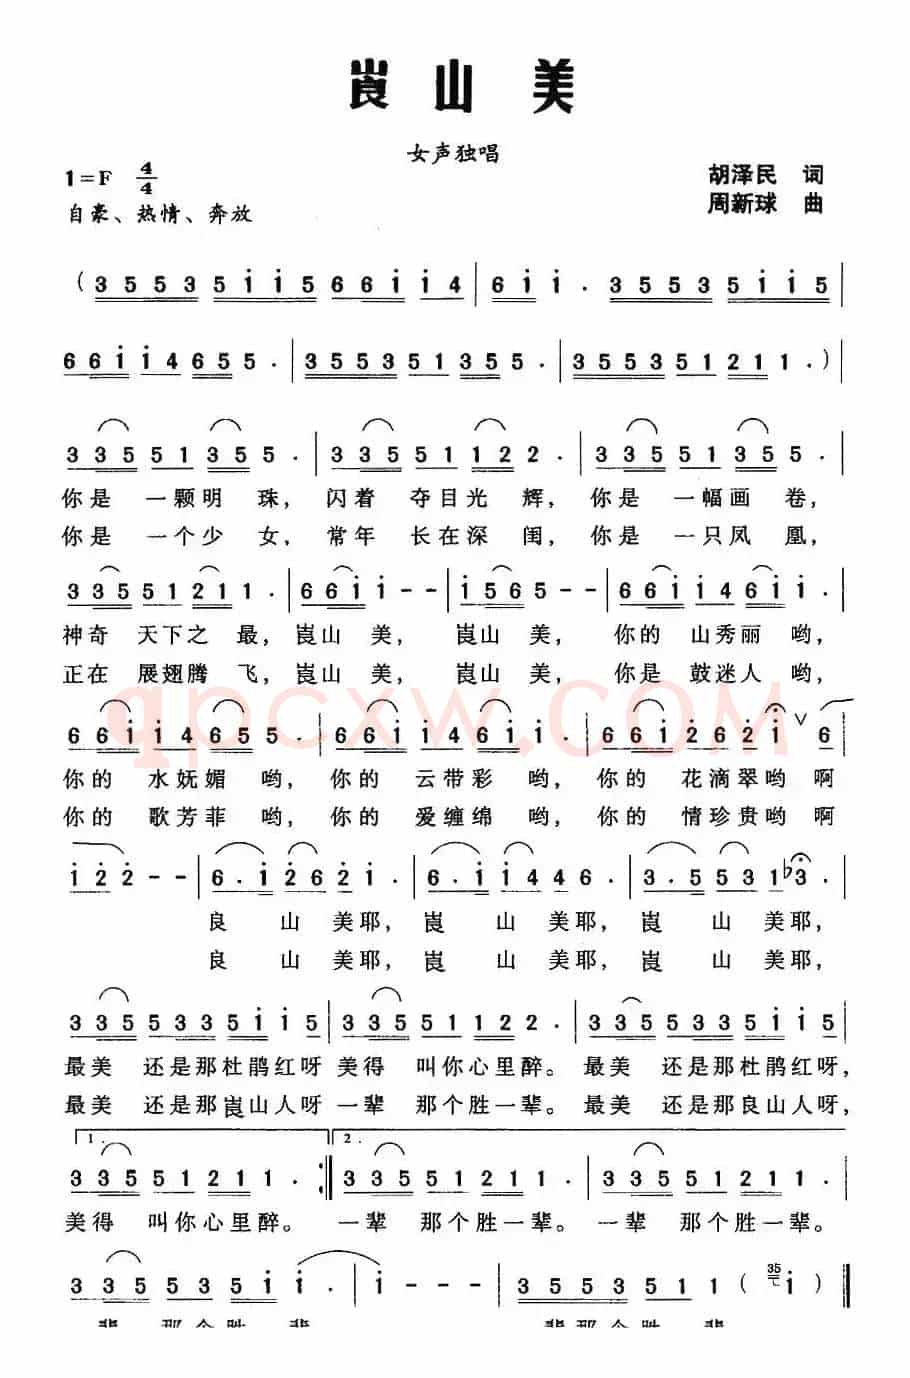 崀山美
女声独唱
1=F 4/4
胡泽民 词
自豪、热情、奔放
周新球 曲
(3553 5i i5 66i i4 | 6i i. 3553 5i i5 |
66i i4 655. | 3553 51 355. | 3553 51 211.) |
3 35 51 355. | 3 35 51 122. | 3 35 51 355. |
你是 一颗明 珠, 闪着 夺目光 辉, 你是 一幅画 卷,
你是 一个少 女, 常年 长在深 闺, 你是 一只凤 凰,
3 35 51 211. | 66i i-- | i565-- | 66i i4 61i. |
神奇 天下之 最, 崀山 美, 崀山 美, 你的 山秀丽 哟,
正在 展翅腾 飞, 崀山 美, 崀山 美, 你是 鼓迷人 哟,
qpcxw.COM
66i i4 655. | 66i i4 6i i. | 66i 26 2i i ∨ 6 |
你的 水妩媚 哟, 你的 云带彩 哟, 你的 花滴翠哟 啊
你的 歌芳菲 哟, 你的 爱缠绵 哟, 你的 情珍贵哟 啊
i 2 2-- | 6.i 26 2i. | 6.i 44 6. | 3.5 53 1♭3. |
良 山 美耶, 崀 山 美耶, 崀 山 美耶,
良 山 美耶, 崀 山 美耶, 崀 山 美耶,
3 35 533 5i i5 | 3 35 51 122. | 3 35 533 5i i5 |
最美 还是那杜鹃红呀 美得 叫你心里醉。 最美 还是那杜鹃红呀,
最美 还是那崀山人呀 一辈 那个胜一辈。 最美 还是那良山人呀,
1. 2.
3 35 51 211. :‖ 3 35 51 211. | 3 35 51 211. |
美得 叫你心里醉。 一辈 那个胜一辈。 一辈 那个胜一辈。
3 35 533 5i i. | i--- | 3553 3511 (35 i) ‖
辈 那个胜 辈 辈那个胜 辈